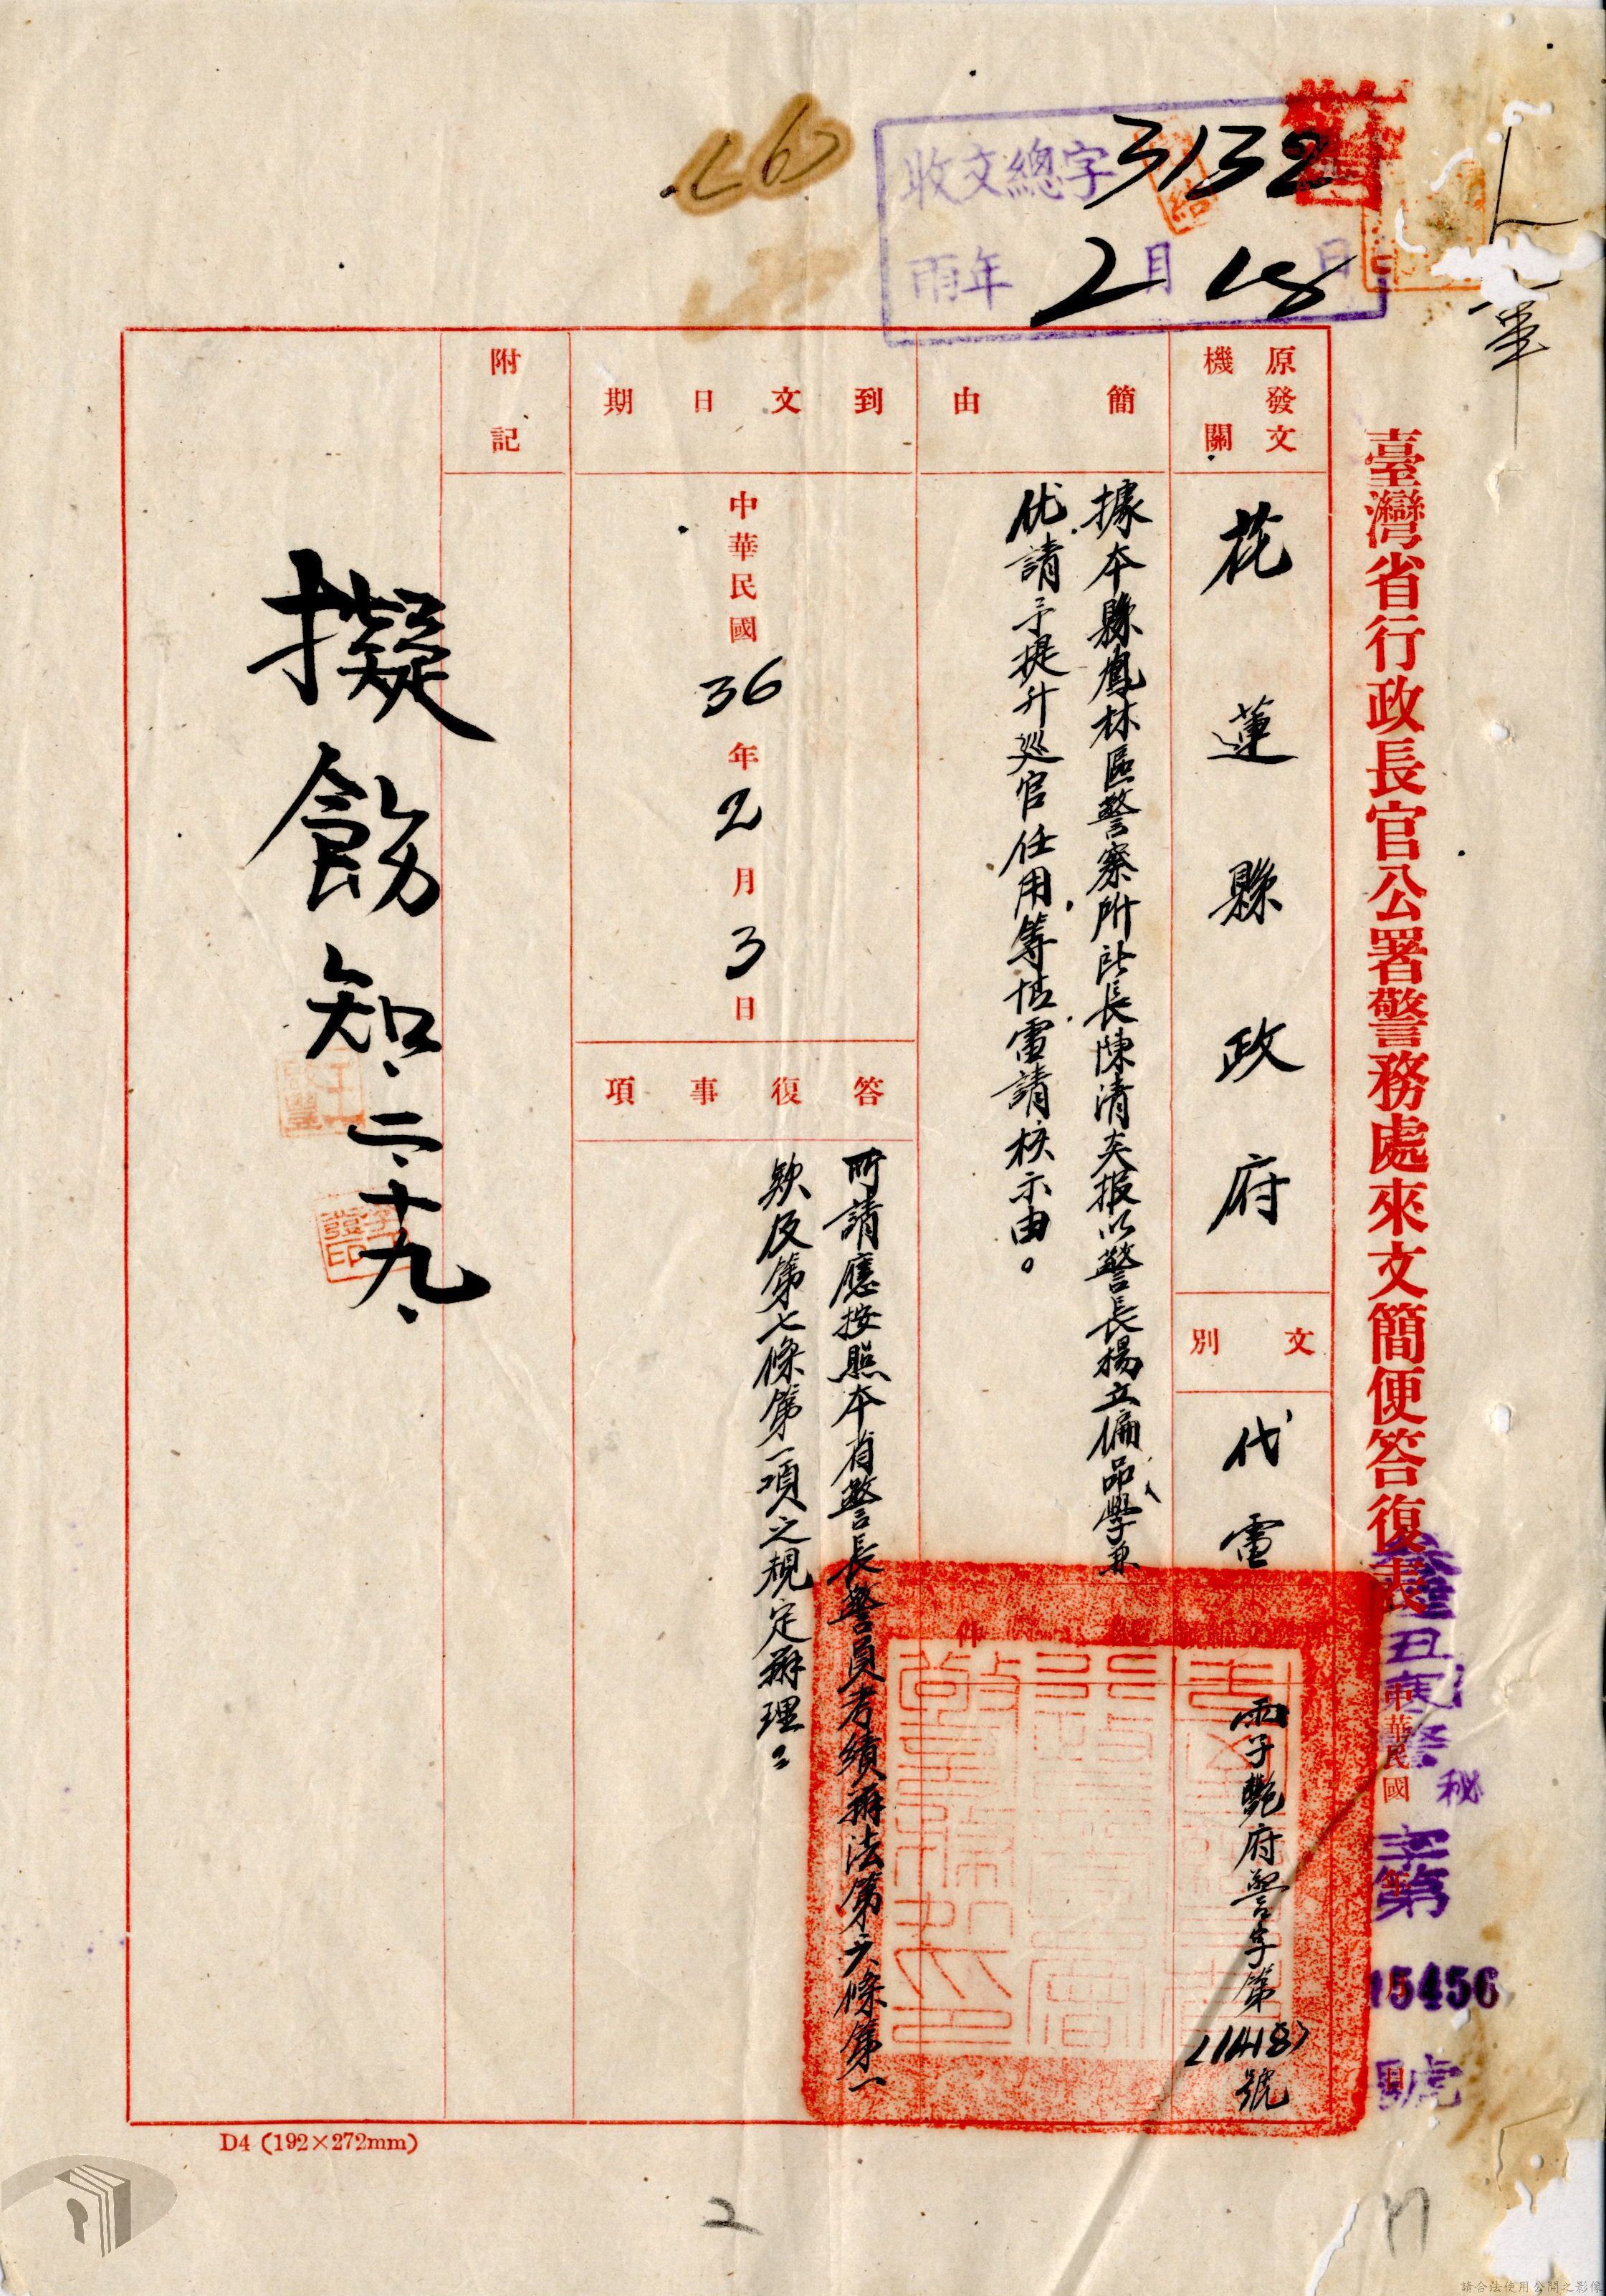 <6>
收文總字 3132
丙年 2月18日
臺灣省行政長官公署警務處來文簡便答復表
中華民國
秘
字第15456號
原發文機關
花蓮縣政府
文別
代電
丙子艷府警字第<1418>號
簡由
據本縣鳳林區警察所所長陳清夫报以警長楊立偏品學兼
优請予提升巡官任用等情電請核示由。
到文日期
中華民國36年2月3日
答復事項
所請應按照本省警長警員考績辦法第六條第一
欵及第七條第一項之規定辦理。
附記
擬飭知、二、十九、
D4 (192×272mm)
2
請合法使用公開之影像